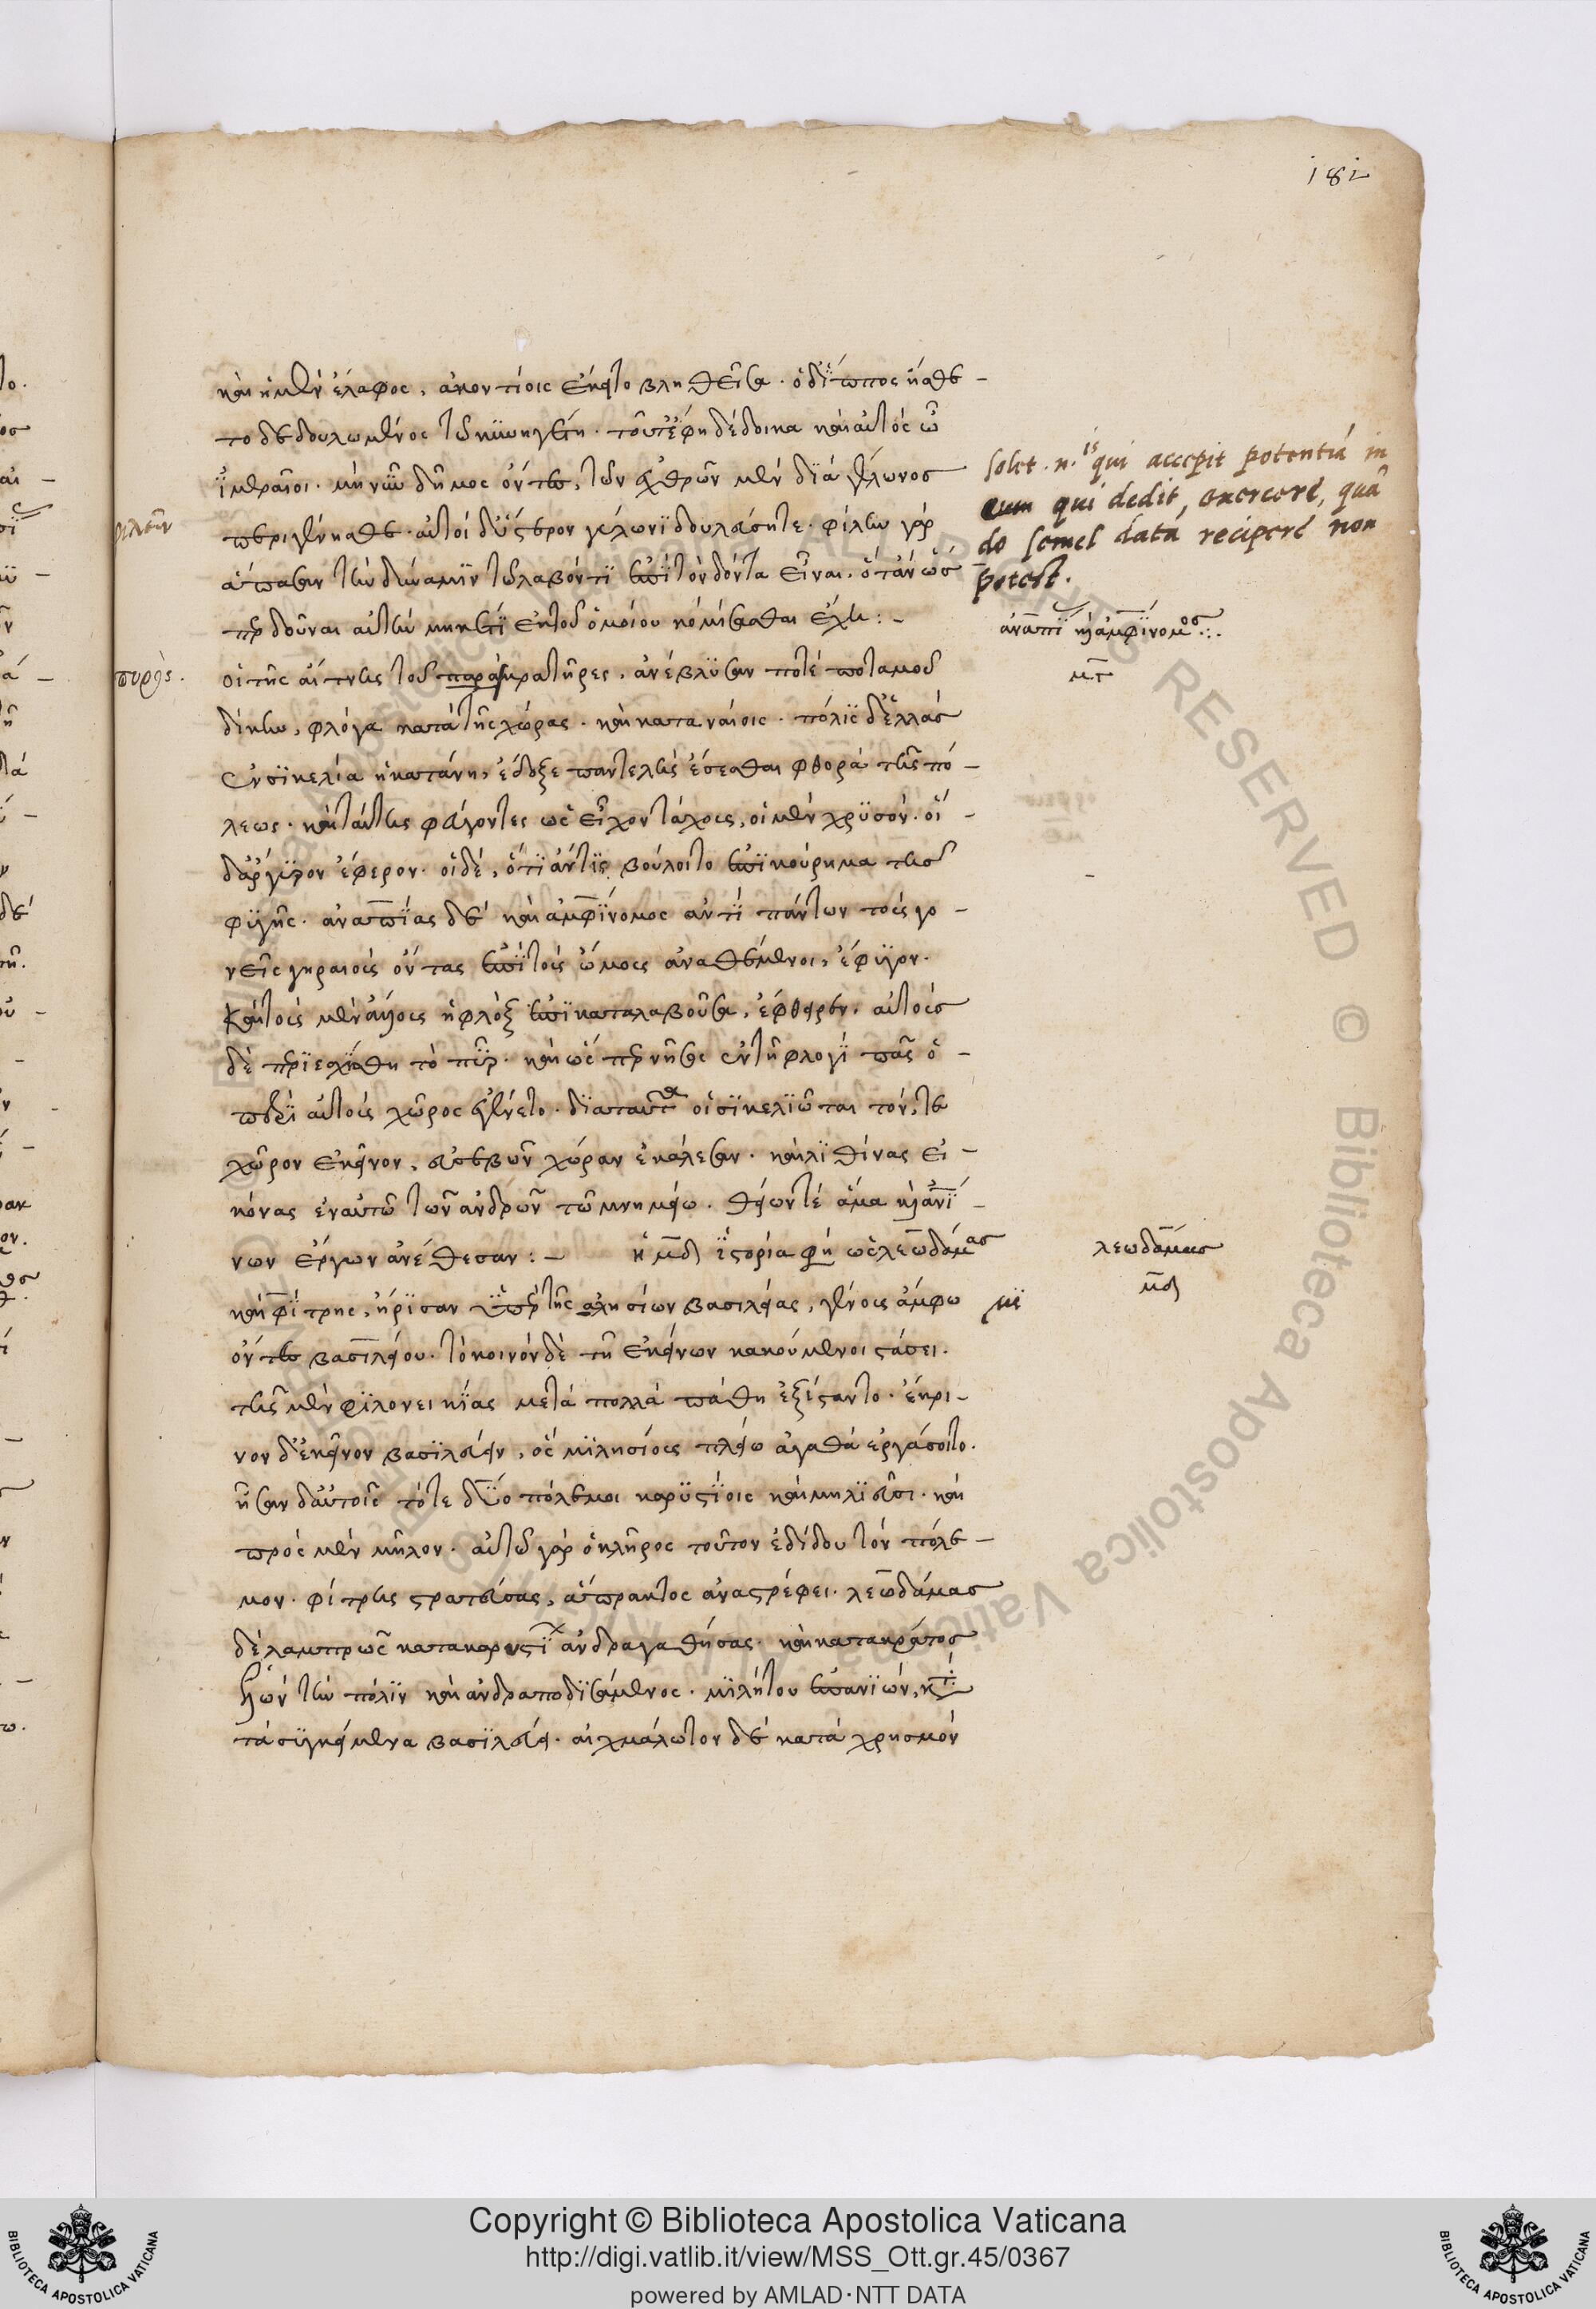 182
καὶ ἡ μὲν ἔλαφος, ἀκοντίοις ἔκειτο βληθεῖσα. ὁ δ' ἵππος ἤσθε –
το δεδουλωμένος τῷ κυνηγέτῃ. τοῦτ' ἔφη δέδοικα καὶ αὐτός ὦ
ἱμεραῖοι. μὴ νῦν δῆμος ὄντες, τῶν ἐχθρῶν μὲν διὰ γέλωνος
περιγένησθε. αὐτοὶ δ' ὕστερον γέλωνι δουλεύσητε. φίλην γὰρ
ἅπασιν τὴν δύναμιν τῷ λαβόντι ἐπὶ τὸν δόντα εἶναι. ὅταν ὡς
περ δοῦναι αὐτὴν μηκέτι ἐκ τοῦ ὁμοίου κομίσασθαι ἔχῃ : –
οἱ τῆς αἴτνης τοῦ παρα κρατῆρες, ἀνέβλυσαν ποτέ ποταμοῦ
δίκην, φλόγα κατὰ τῆς χώρας. καὶ καταναίοις. πόλις δ' ἑλλὰς
ἐν σικελία ἡ κατάνη, ἔδοξε παντελὴς ἔσεσθαι φθορὰ τῆς πό –
λεως. καὶ ταύτης φεύγοντες ὡς εἶχον τάχους, οἱ μὲν χρυσόν. οἱ –
δ' ἄργυρον ἔφερον. οἱ δέ, ὅτι ἄν τις βούλοιτο ἐπικούρημα τῆς
φυγῆς. ἀναπίας δὲ καὶ ἀμφίνομος ἀντὶ πάντων τοὺς γο –
νεῖς γηραιοὺς ὄντας ἐπὶ τοὺς ὤμους ἀναθέμενοι, ἔφυγον.
καὶ τοὺς μὲν ἄλλους ἡ φλὸξ ἐπικαταλαβοῦσα, ἔφθειρεν. αὐτοὺς
δὲ περιεσχίσθη τὸ πῦρ. καὶ ὥσπερ νῆσος ἐν τῇ φλογὶ πᾶς ὁ –
περὶ αὐτοὺς χῶρος ἐγένετο. διὰ ταῦτα οἱ σικελιῶται τόν, τε
χῶρον ἐκεῖνον, εὐσεβῶν χώραν ἐκάλεσαν. καὶ λιθίνας εἰ –
κόνας ἐν αὐτῷ τῶν ἀνδρῶν τῷ μνημείω. θείων τέ ἅμα καὶ ἀνί –
νων ἔργων ἀνέθεσαν : – ἡ μδ ἱστορία φη ὡς λεωδάμας
καὶ φίτρης, ἤρισαν ὑπὲρ τῆς λησίων βασιλείας, γένους ἄμφω
ὄντες βασιλείου. τὸ κοινὸν δὲ τῇ ἐκείνων κακούμενοι στάσει.
τῆς μὲν φιλονεικίας μετὰ πολλὰ πάθη ἐξίσταντο. ἔκρι –
νον δ' ἐκεῖνον βασιλεύειν, ὃς μιλησίους πλείω ἀγαθὰ ἐργάσοιτο.
ἦσαν δ' αὐτοῖς τότε δύο πόλεμοι καρυστίοις καὶ μηλιεῦσι. καὶ
πρὸς μὲν μῆλον. αὐτῷ γὰρ ὁ κλῆρος τοῦτον ἐδίδου τὸν πόλε –
μον. φίτρης στρατεύσας, ἄπρακτος ἀναστρέφει. λεωδάμας
δὲ λαμπρῶς κατὰ καρυστί ἀνδραγαθήσας. καὶ κατακράτος
ἑλὼν τὴν πόλιν καὶ ἀνδραποδισάμενος. μιλήτου ἐπανιών, κτ
τὰ συγκείμενα βασιλεύει. αἰχμάλωτον δὲ κατὰ χρησμὸν
πυρὸς.
solet. n. is qui accepit potentiā in
eum qui dedit, exercere, quā
do semel data recipere non
potest.
ἀναπί καὶ ἀμφίνομος :.
μγ
λεωδάμας
μδ
μι
Copyright © Biblioteca Apostolica Vaticana
http://digi.vatlib.it/view/MSS_Ott.gr.45/0367
powered by AMLAD·NTT DATA